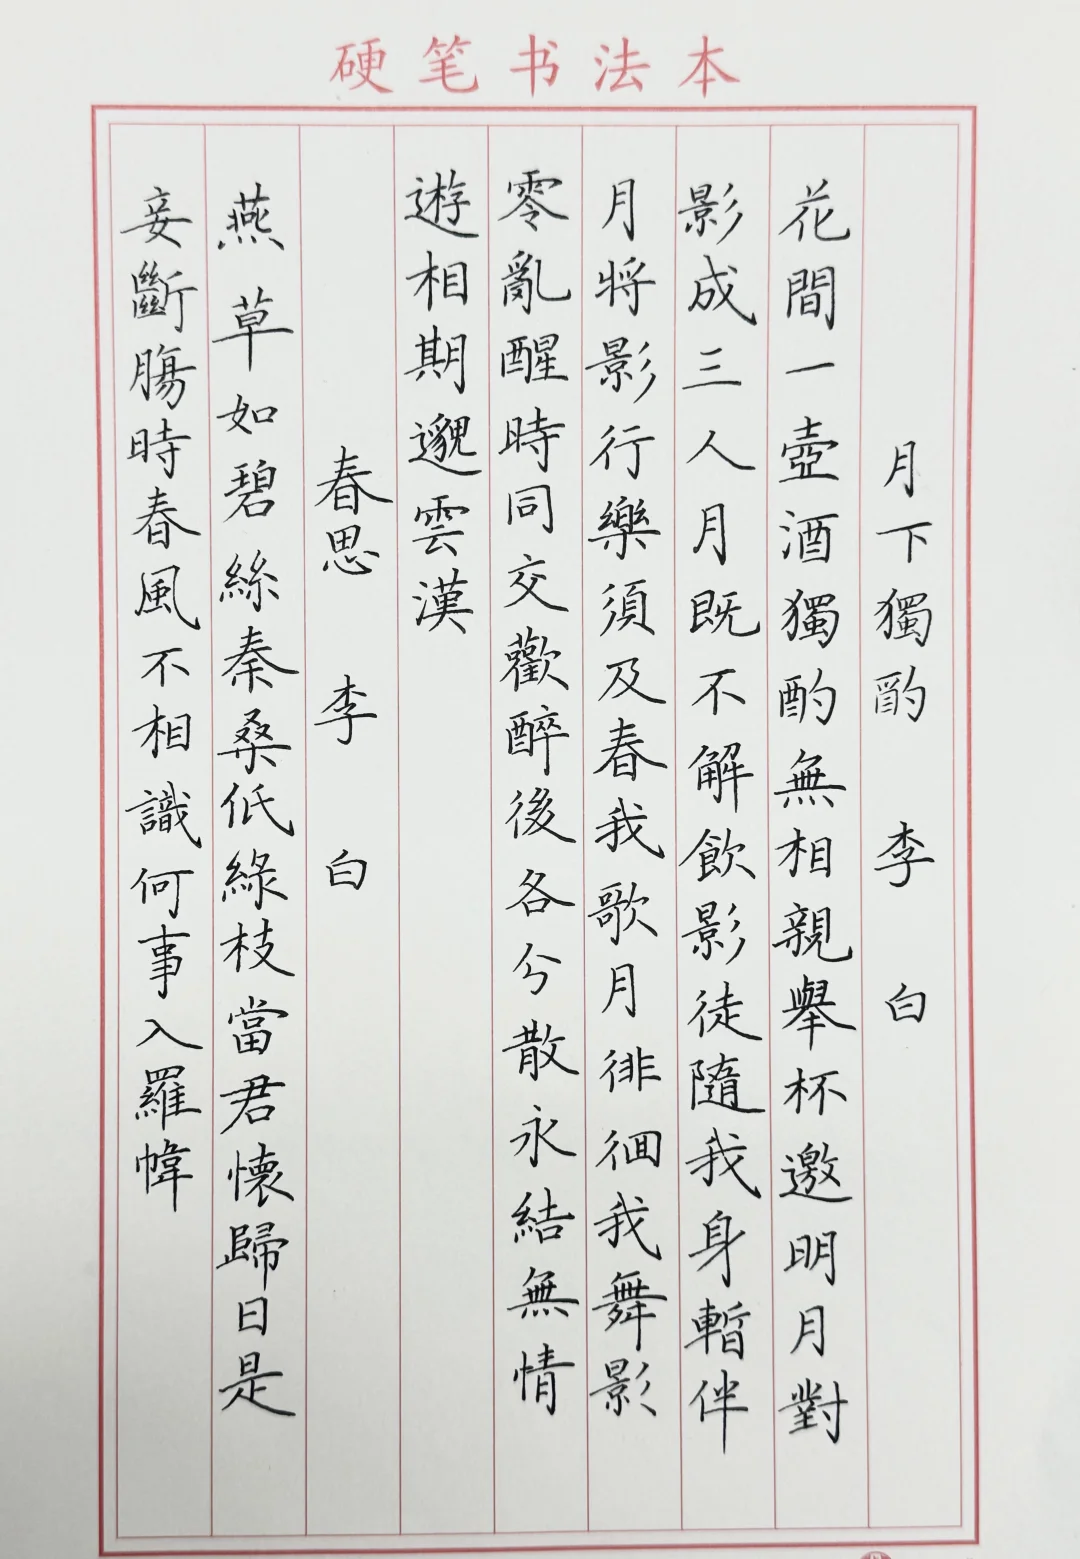 硬笔书法本
月下獨酌 李白
花間一壺酒獨酌無相親舉杯邀明月對
影成三人月既不解飲影徒隨我身暫伴
月將影行樂須及春我歌月徘徊我舞影
零亂醒時同交歡醉後各分散永結無情
遊相期邈雲漢
春思 李白
燕草如碧絲秦桑低綠枝當君懷歸日是
妾斷腸時春風不相識何事入羅幃